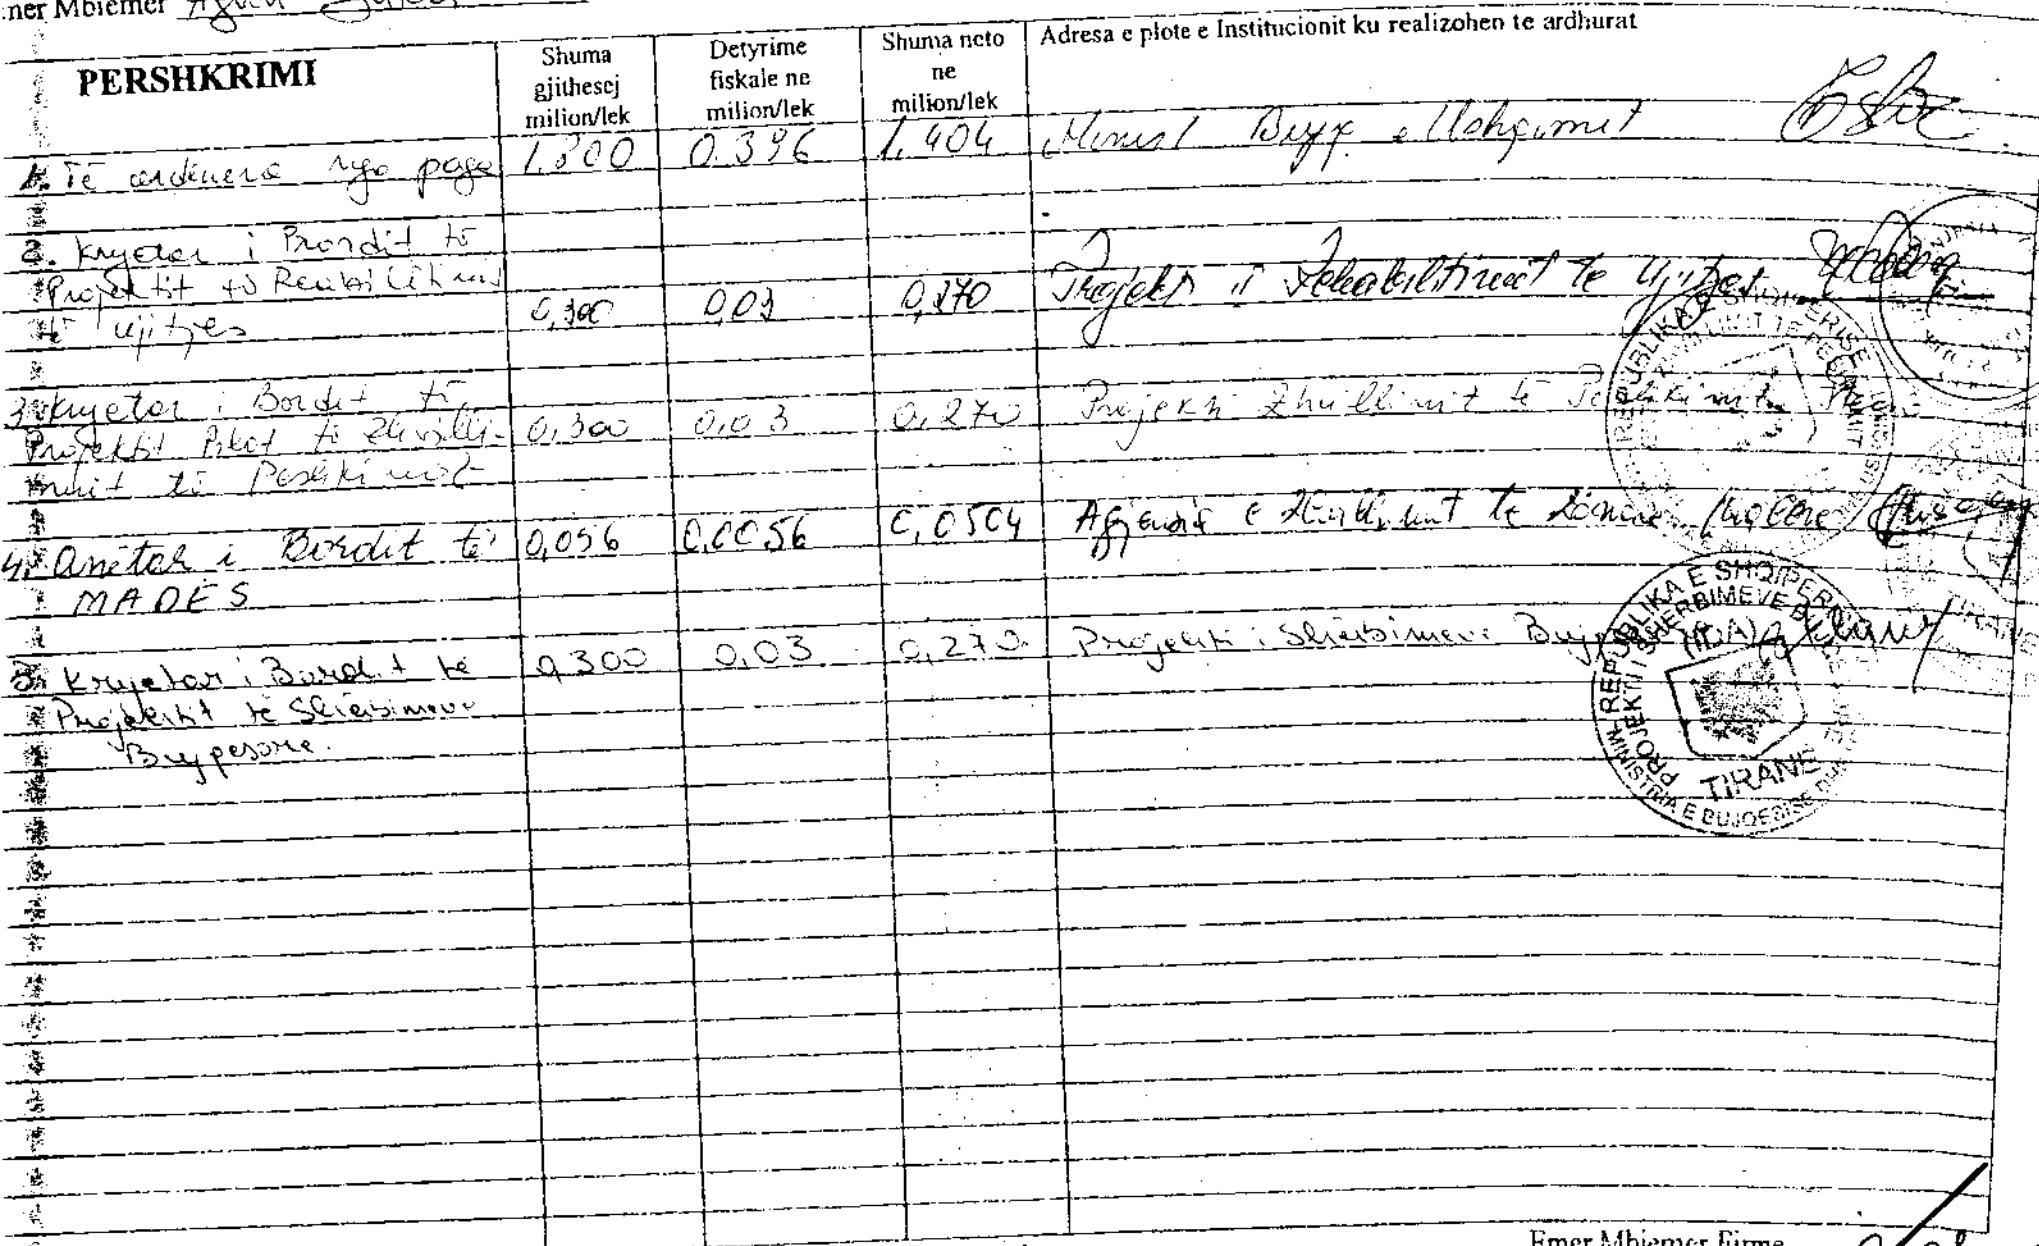 Mbiemer
PERSHKRIMI
Shuma
gjithesej
milion/lek
Detyrime
fiskale ne
milion/lek
Shuma neto
ne
milion/lek
Adresa e plote e Institucionit ku realizohen te ardhurat
1. Të ardhura nga paga 1.800 0.396 1.404 Minist Bujq e Ushqimit
2. Kryetar i Bordit të
Projektit të Reabilitimit
të ujitjes 0,300 0,03 0,270 Projekti i Rehabilitimit te Ujitjes
3. Kryetar i Bordit të
Projektit Pilot të Zhvilli- 0,300 0,03 0,270 Projekti Zhvillimit të Peshkimit
mit të Peshkimit
4. Anëtar i Bordit të 0,056 0,0056 0,0504 Agjensia e Zhvillimit te Zonave
MADES
5. Kryetar i Bordit të 0,300 0,03 0,270 Projekti i Shërbimeve
Projektit të Shërbimeve
Bujqesore.
REPUBLIKA E SHQIPERISE
REPUBLIKA E SHQIPERI
PROJEKTI I SHERBIMEVE
TIRANE
MINISTRIA E BUJQESISE
Emer Mbiemer Firme